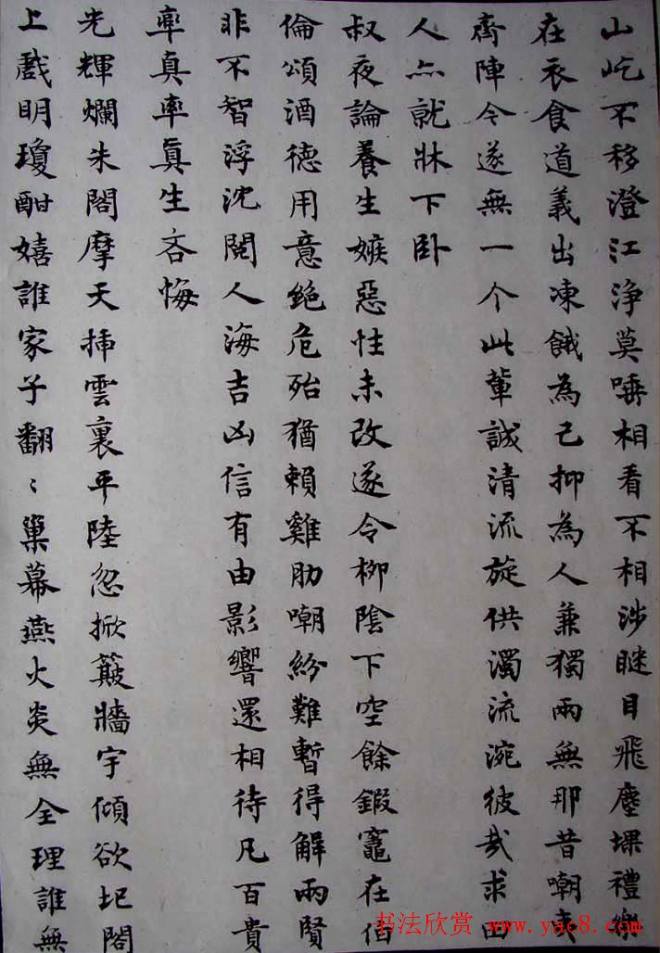 山屹不移澄江浄莫唾相看不相涉瞇目飛塵堁禮樂
在衣食道義出凍餓為己抑為人兼獨兩無那昔嘲夷
齊陣今遂無一个此輩誠清流旋供濁流涴彼哉求田
人亦就牀下卧
叔夜論養生嫉惡性未改遂令柳陰下空餘鍛竈在伯
倫頌酒德用意絶危殆猶賴雞肋嘲紛難暫得解兩賢
非不智浮沈閱人海吉凶信有由影響還相待凡百貴
率真率真生吝悔
光輝爛朱閣摩天插雲裏平陸忽掀簸牆宇傾欲圯閣
上戲明瓊酣嬉誰家子翻〻巢幕燕火炎無全理誰無
书法欣赏 www.yac8.com